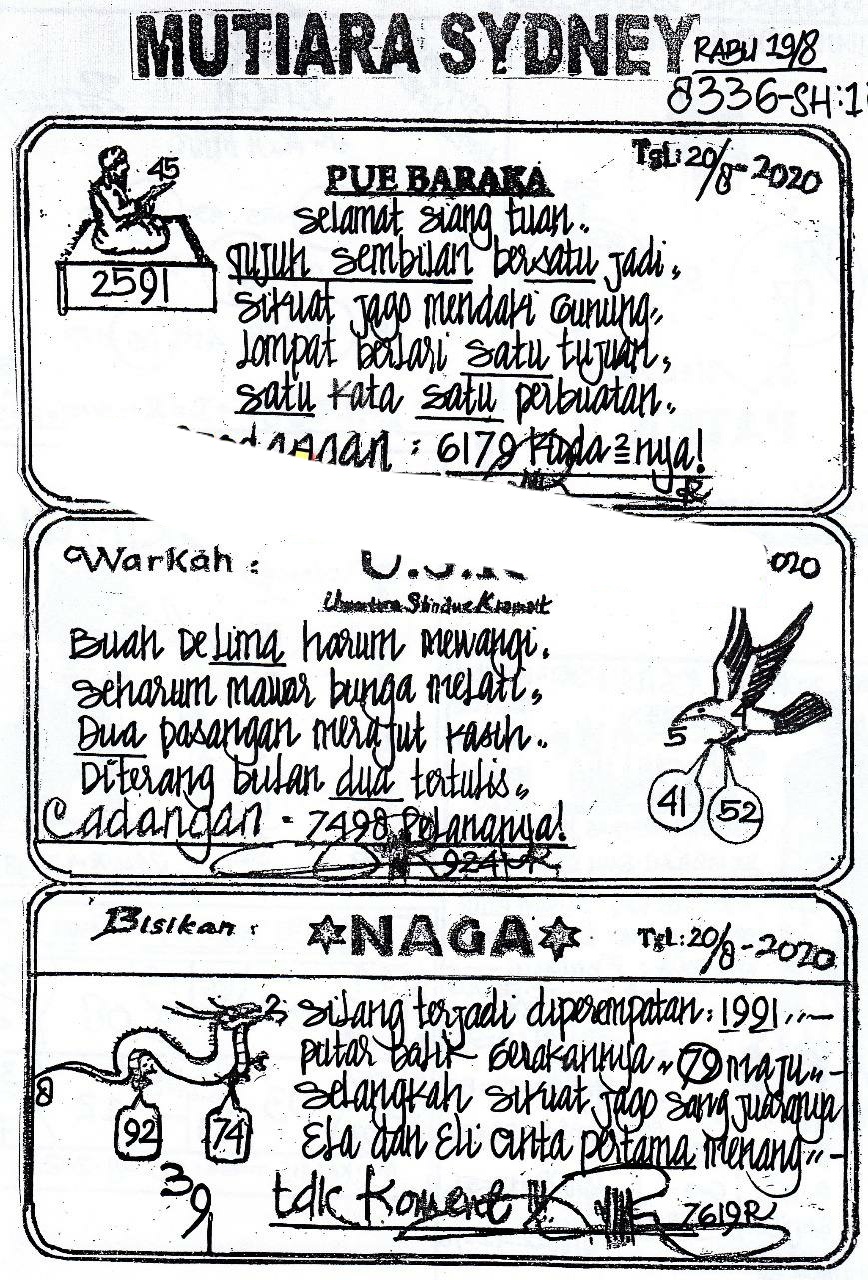 MUTIARA SYDNEY
RABU 19/8
8336-SH:1
45
2591
PUE BARAKA
TGL: 20/8-2020
Selamat siang tuan..
Tujuh sembilan bersatu jadi,,
Sikuat jago mendaki Gunung,,
Lompat berlari satu tujuan,,
satu kata satu perbuatan..
: 6179 Kuda 2 nya!
R
Warkah :
020
Buah Delima harum mewangi.
Seharum mawar bunga melati,,
Dua pasangan merajut kasih..
Diterang bulan dua tertulis,,
Cadangan - 7498 Pelananya!
924
5 4
41 52
Bisikan :
✡NAGA✡
TGL: 20/8-2020
2
8
92 74
39
1
Silang terjadi diperempatan: 1991,,-
Putar balik Gerakannya,, 79 maju,,-
Selangkah sikuat jago sang juaranya
Ela dan Eli cinta pertama menang,,-
tdk Komene !!!
7619R